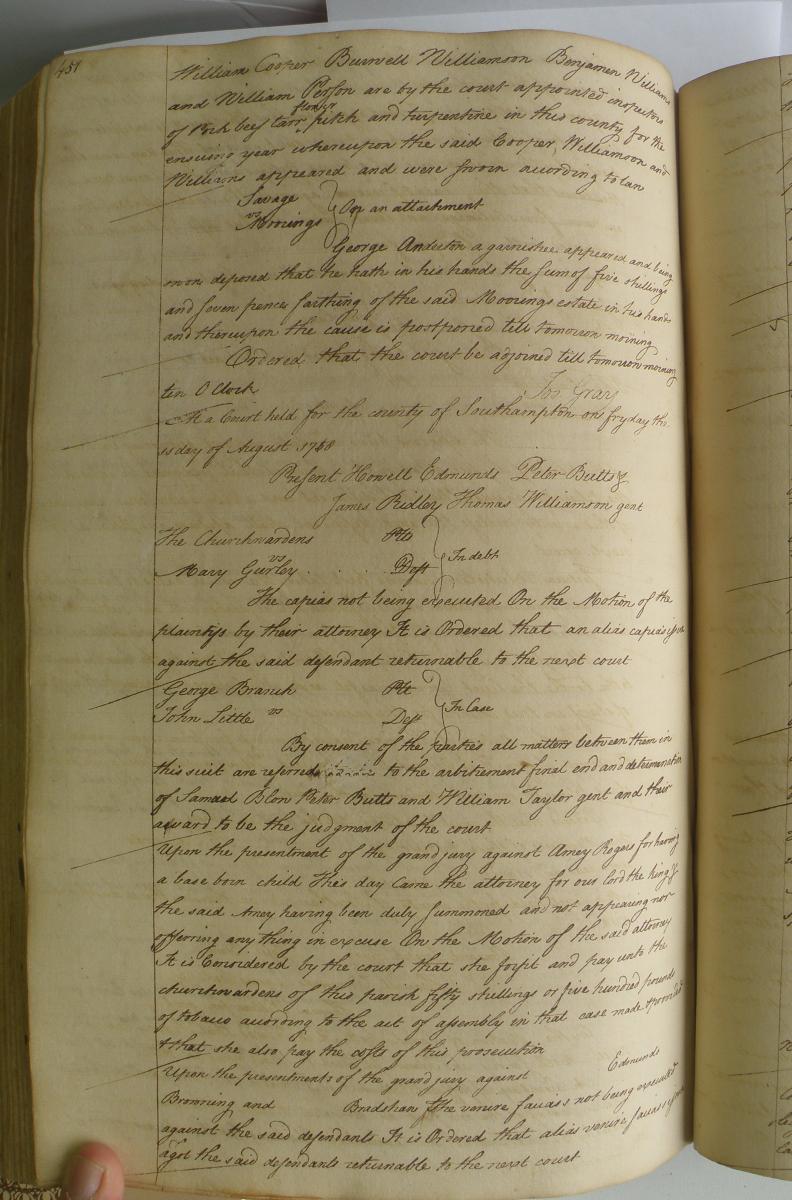 451
William Cooper Burwell Williamson Benjamen Williams
and William Person are by the court appointed inspectors
of Pork beef tarr flower pitch and turpentine in this county for the
ensuing year whereupon the said Cooper, Williamson and
Williams appeared and were sworn according to law
Savage
vs On an attachment
Moorings
George Anderton a garnishee appeared and being
sworn deposed that he hath in his hands the sum of five shillings
and seven pence farthing of the said Moorings estate in his hands
and thereupon the cause is postponed till tomorrow morning
Ordered that the court be adjoined till tomorrow morning
ten O Clock
Jos Gray
At a Court held for the county of Southampton on fryday the
11 day of August 1758
Present Howell Edmunds Peter Butts &
James Ridley Thomas Williamson gent
The Churchwardens Plts
vs In debt
Mary Gurley . . . . Deft
The capias not being executed On the Motion of the
plaintifs by their attorney It is Ordered that an alias capias issue
against the said defendant returnable to the next court
George Branch Plt
vs In Case
John Little Deft
By consent of the parties all matters between them in
this suit are referred to the arbitrement final end and determination
of Samuel Blow Peter Butts and William Taylor gent and their
award to be the judgment of the court
Upon the presentment of the grand jury against Amey Rogers for having
a base born child This day Came the attorney for our Lord the king &
the said Amey having been duly summoned and not appearing nor
offering any thing in excuse On the Motion of the said attorney
It is Considered by the court that she forfit and pay unto the
churchwardens of this parish fifty shillings or five hundred pounds
of tobaco according to the act of assembly in that case made & provided
& that she also pay the costs of this prosecution
Upon the presentments of the grand jury against Edmunds
Browning and Bradshaw The venire facias not being executed
against the said defendants It is Ordered that alias venire facias issue
agst the said defendants returnable to the next court